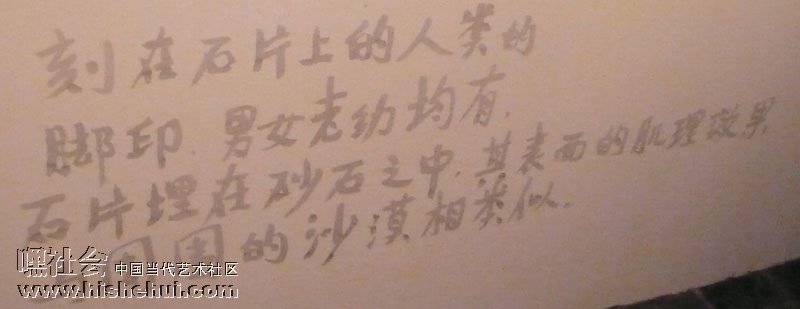 刻在石片上的人类的
脚印.男女老幼均有.
石片埋在砂石之中.其表面的肌理效果
周围的沙漠相类似.
嘿社会 中国当代艺术社区
www.hishehui.com